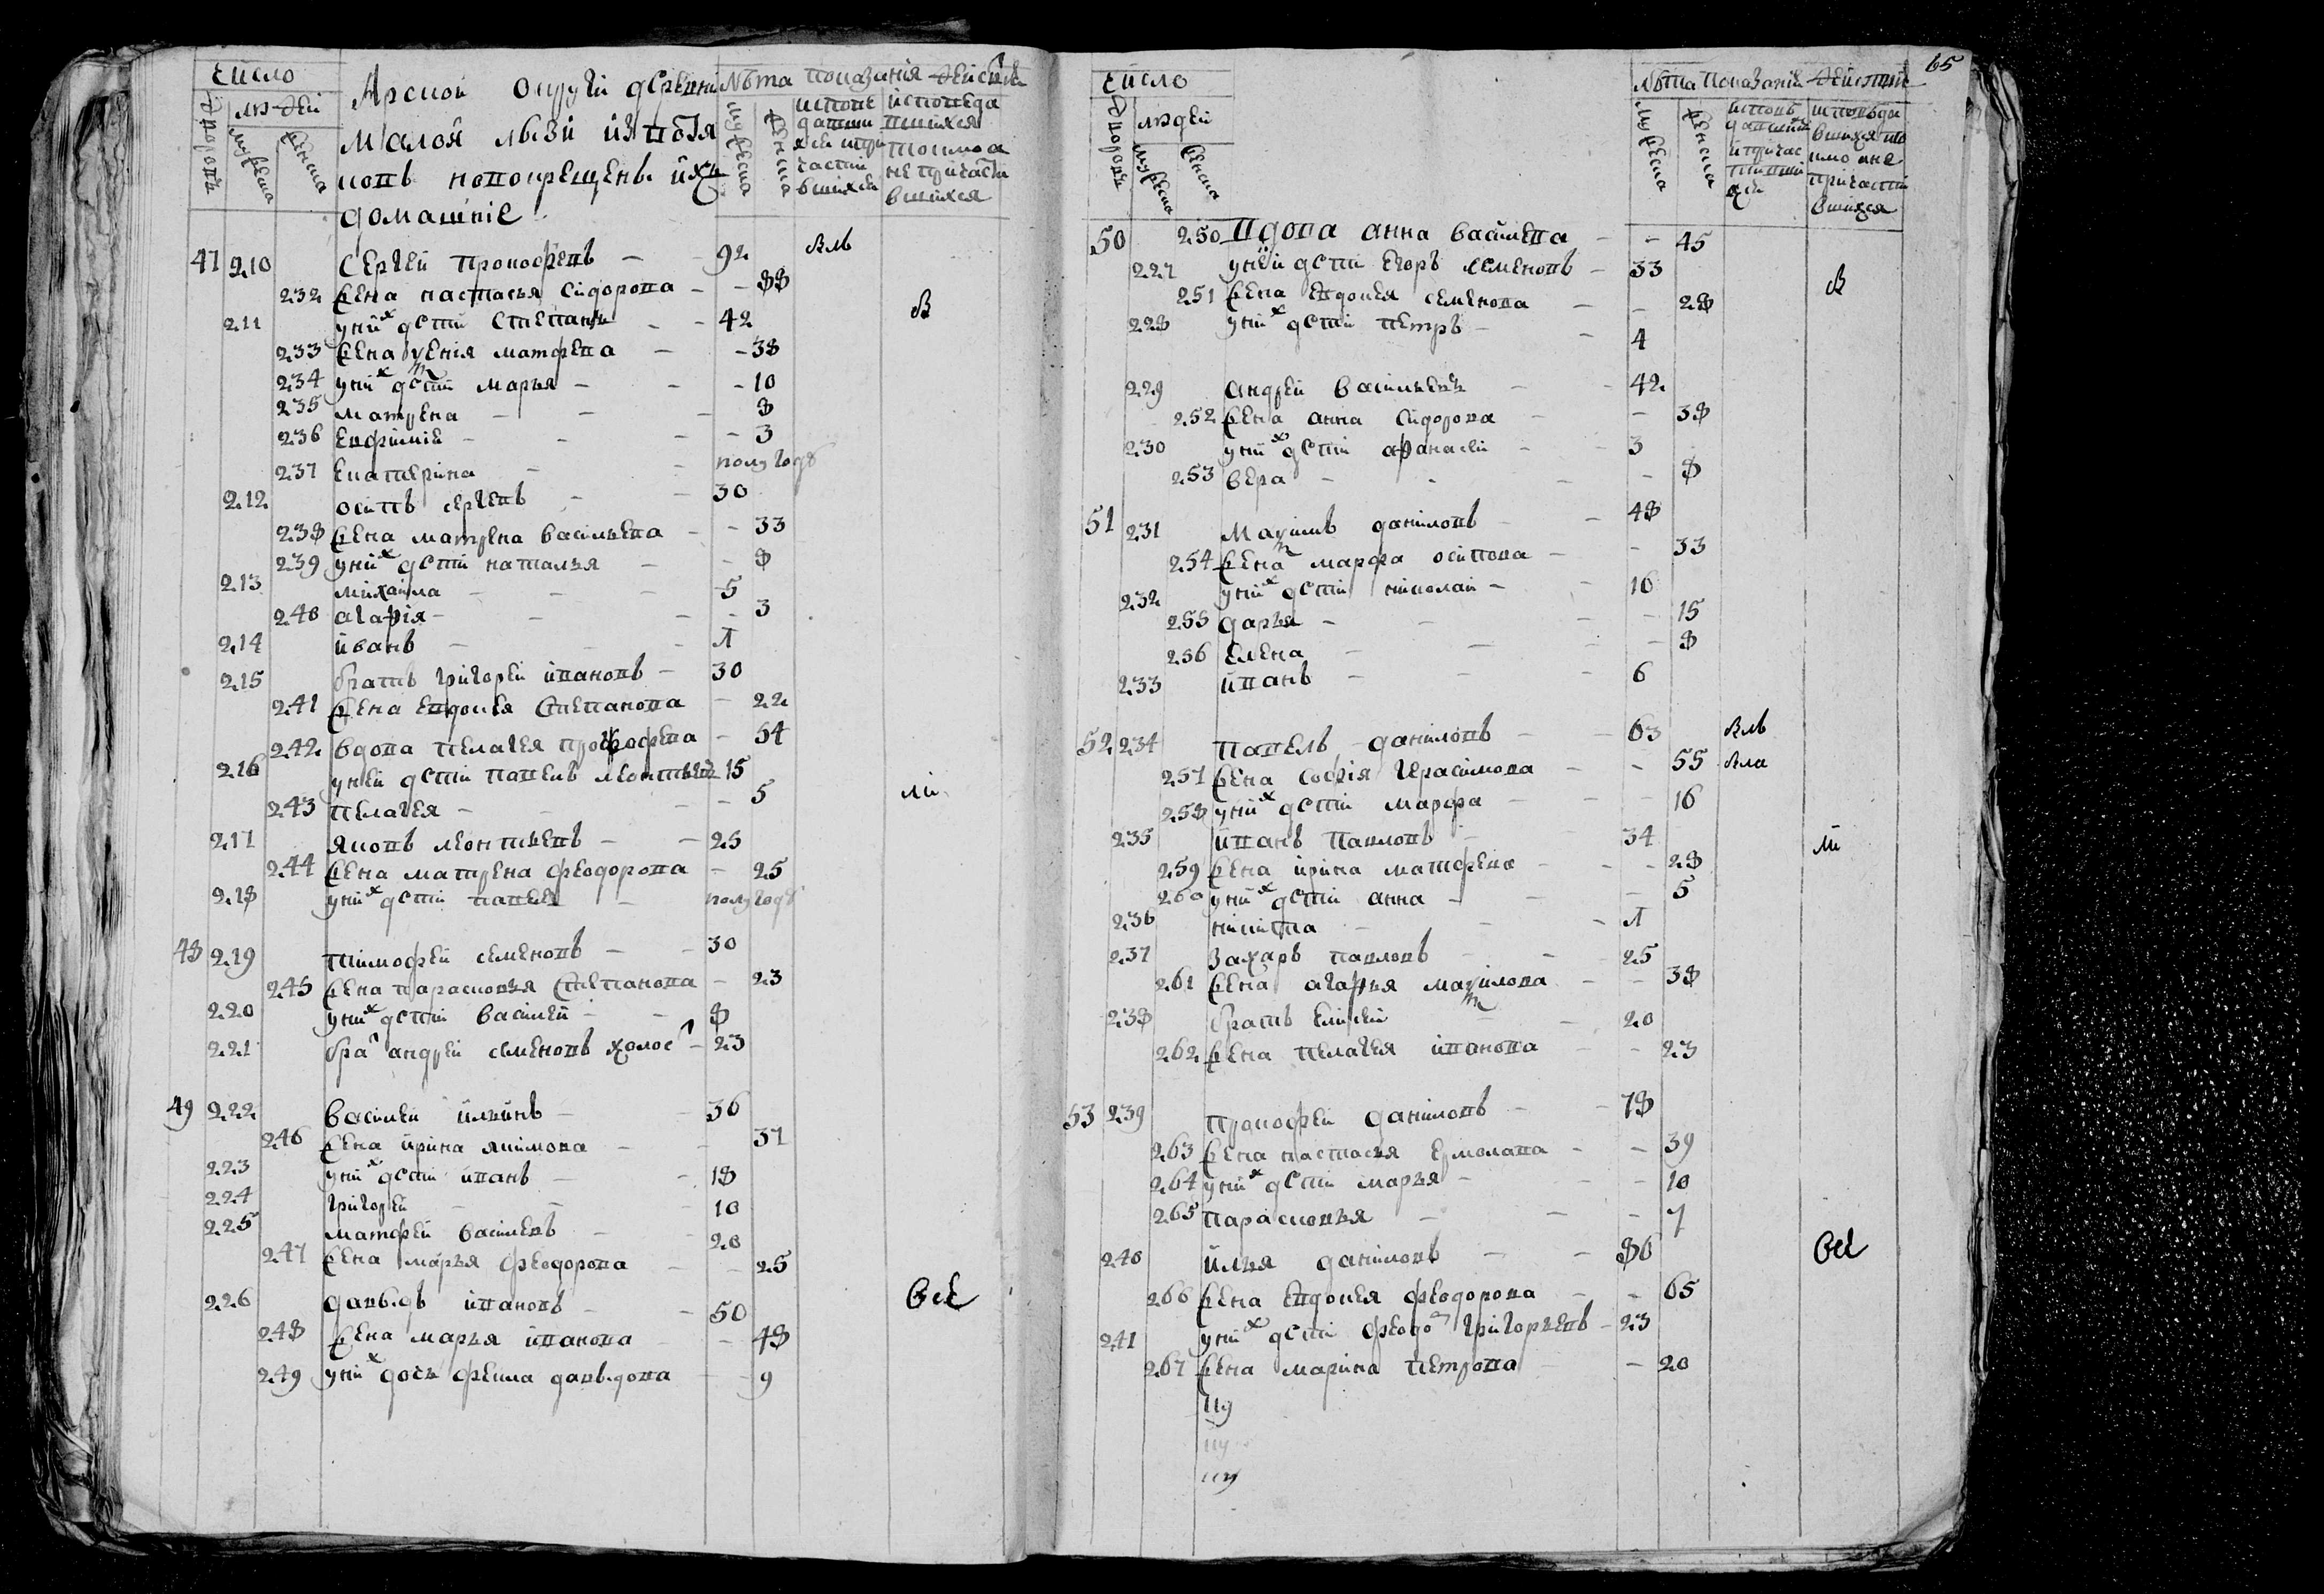 Число
Арской округи деревни
Малой Лызи из вотя
ковъ новокрещенъ ихъ
домашние
Лѣта
показания действъ
дворовъ
людей
мужеска
женска
мужеска
женска
исповедавшихся и причастившихся
исповедавшихся токмо а не причастившихся
47 210 Сергей Прокофьевъ - 92 вль
232 Жена настасья Сидорова - - 88
211 у них дети Степанъ - - 42 в
233 Жена матфева - - 38
234 у них дети марья - - - 10
235 матрена - - - 8
236 Евфимие - - - 3
237 Екатерина - - полугоду
212 осипъ сергеевъ - - 30
238 Жена матрена васильева - - 33
239 у них дети наталья - - 8
213 михаила - - - 5
240 агафия - - - 3
214 иванъ - - 1
215 братъ григорей ивановъ - 30
241 Жена евдокея степанова - 22
242 вдова пелагея - 54
216 у ней дети павелъ леонтьевъ 15
243 пелагея - - - 5 ли
217 яковъ леонтьевъ - - 25
244 Жена матрена феодорова - 25
218 у них дети - полугоду
48 219 тимофей семеновъ - - 30
245 Жена парасковья степанова - 23
220 у них дети василей - - 8
221 бра т андрей семеновъ холос т - 23
49 222 василей ильинъ - - 36
246 Жена ирина якимова - - 37
223 у них дети иванъ - - 18
224 григорей - - - 10
225 матфей васильевъ - - 20
247 Жена марья феодорова - - 25
226 давыдъ ивановъ - - 50 все
248 Жена марья иванова - 48
249 у них дочь фекла давыдова - - 9
65
Число
дворовъ
людей
мужеска
женска
Лѣта показание действие
мужеска
женска
исповедавшихся и причастившихся
исповедавшихся токмо а не причастившихся
50 250 Вдова анна васильева - - 45
227 у ней дети егоръ семеновъ - 33 в
251 Жена евдокея семенова - - 28
228 у них дети петръ - - 4
229 андрей васильевъ - - 42
252 Жена анна сидорова - - 38
230 у них дети афанасей - - 3
253 вера - - - - 8
51 231 Максимъ даниловъ - - 48
254 Жена марфа осипова - - 33
232 у них дети николай - - 16
255 дарья - - - - 15
256 елена - - - 8
233 иванъ - - - 6
52 234 павелъ даниловъ - - 63 вль
257 Жена софия герасимова - - 55 вла
258 у них дети марфа - - - 16
235 иванъ павловъ - 34 ли
259 Жена ирина матфева - - - 28
260 у них дети анна - - - 5
236 никита - - - 1
237 захаръ павловъ - - 25
261 Жена агафья максимова - - 38
238 братъ елисей - - 20
262 Жена пелагея иванова - - 23
53 239 прокофей даниловъ - - 78
263 Жена настасья ермолаева - - 39
264 у них дети марья - - - 10
265 парасковья - - - 7
240 илья даниловъ - - 80 все
266 Жена евдокея феодорова - - 65
241 у них дети феодо р григорьевъ - 23
267 Жена марина петрова - - 20